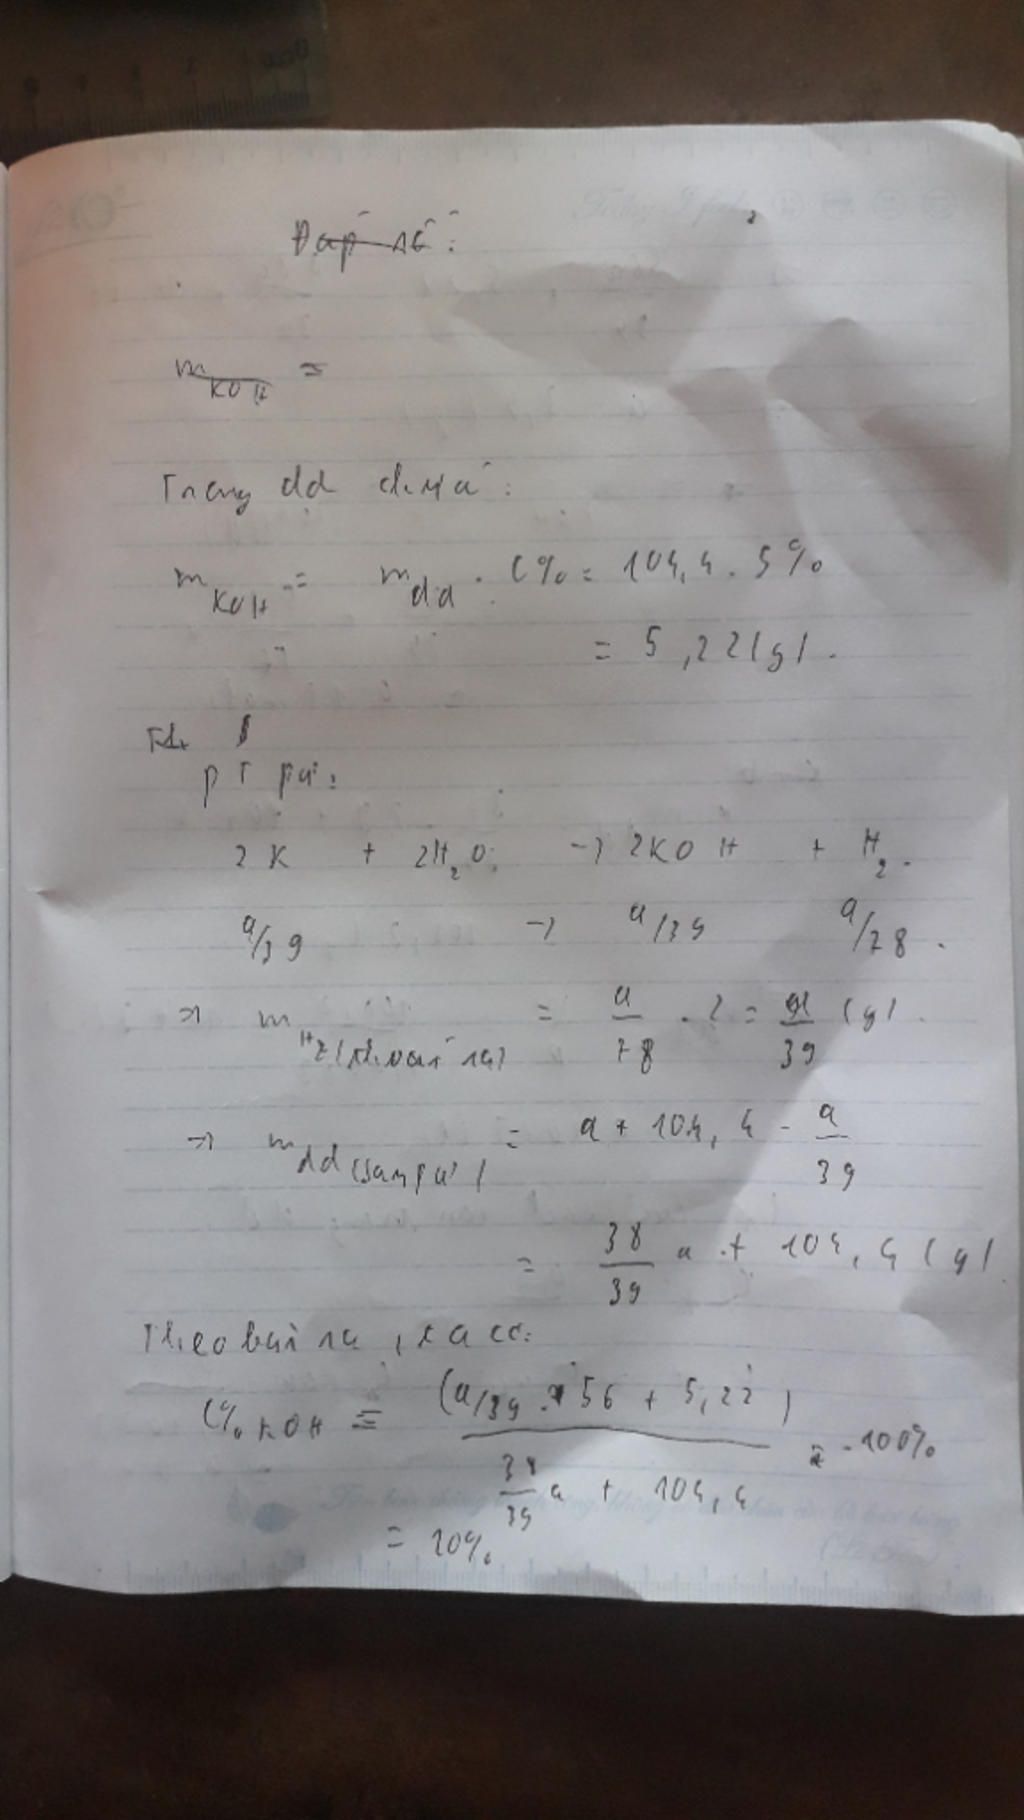 Đáp số:
m KOH =
Trong dd chứa:
m KOH = m dd . C% = 104,4 . 5%
= 5,22 (g).
pT pứ:
2K + 2H2O → 2KOH + H2.
a/39 → a/39 a/78.
⇒ m H2 (thoát ra) = a/78 . 2 = a/39 (g).
⇒ m dd (sau pứ) = a + 104,4 - a/39
= 38/39 a + 104,4 (g)
Theo bài ra, ta có:
C% KOH = (a/39 . 56 + 5,22) / (38/39 a + 104,4) . 100%
= 10%